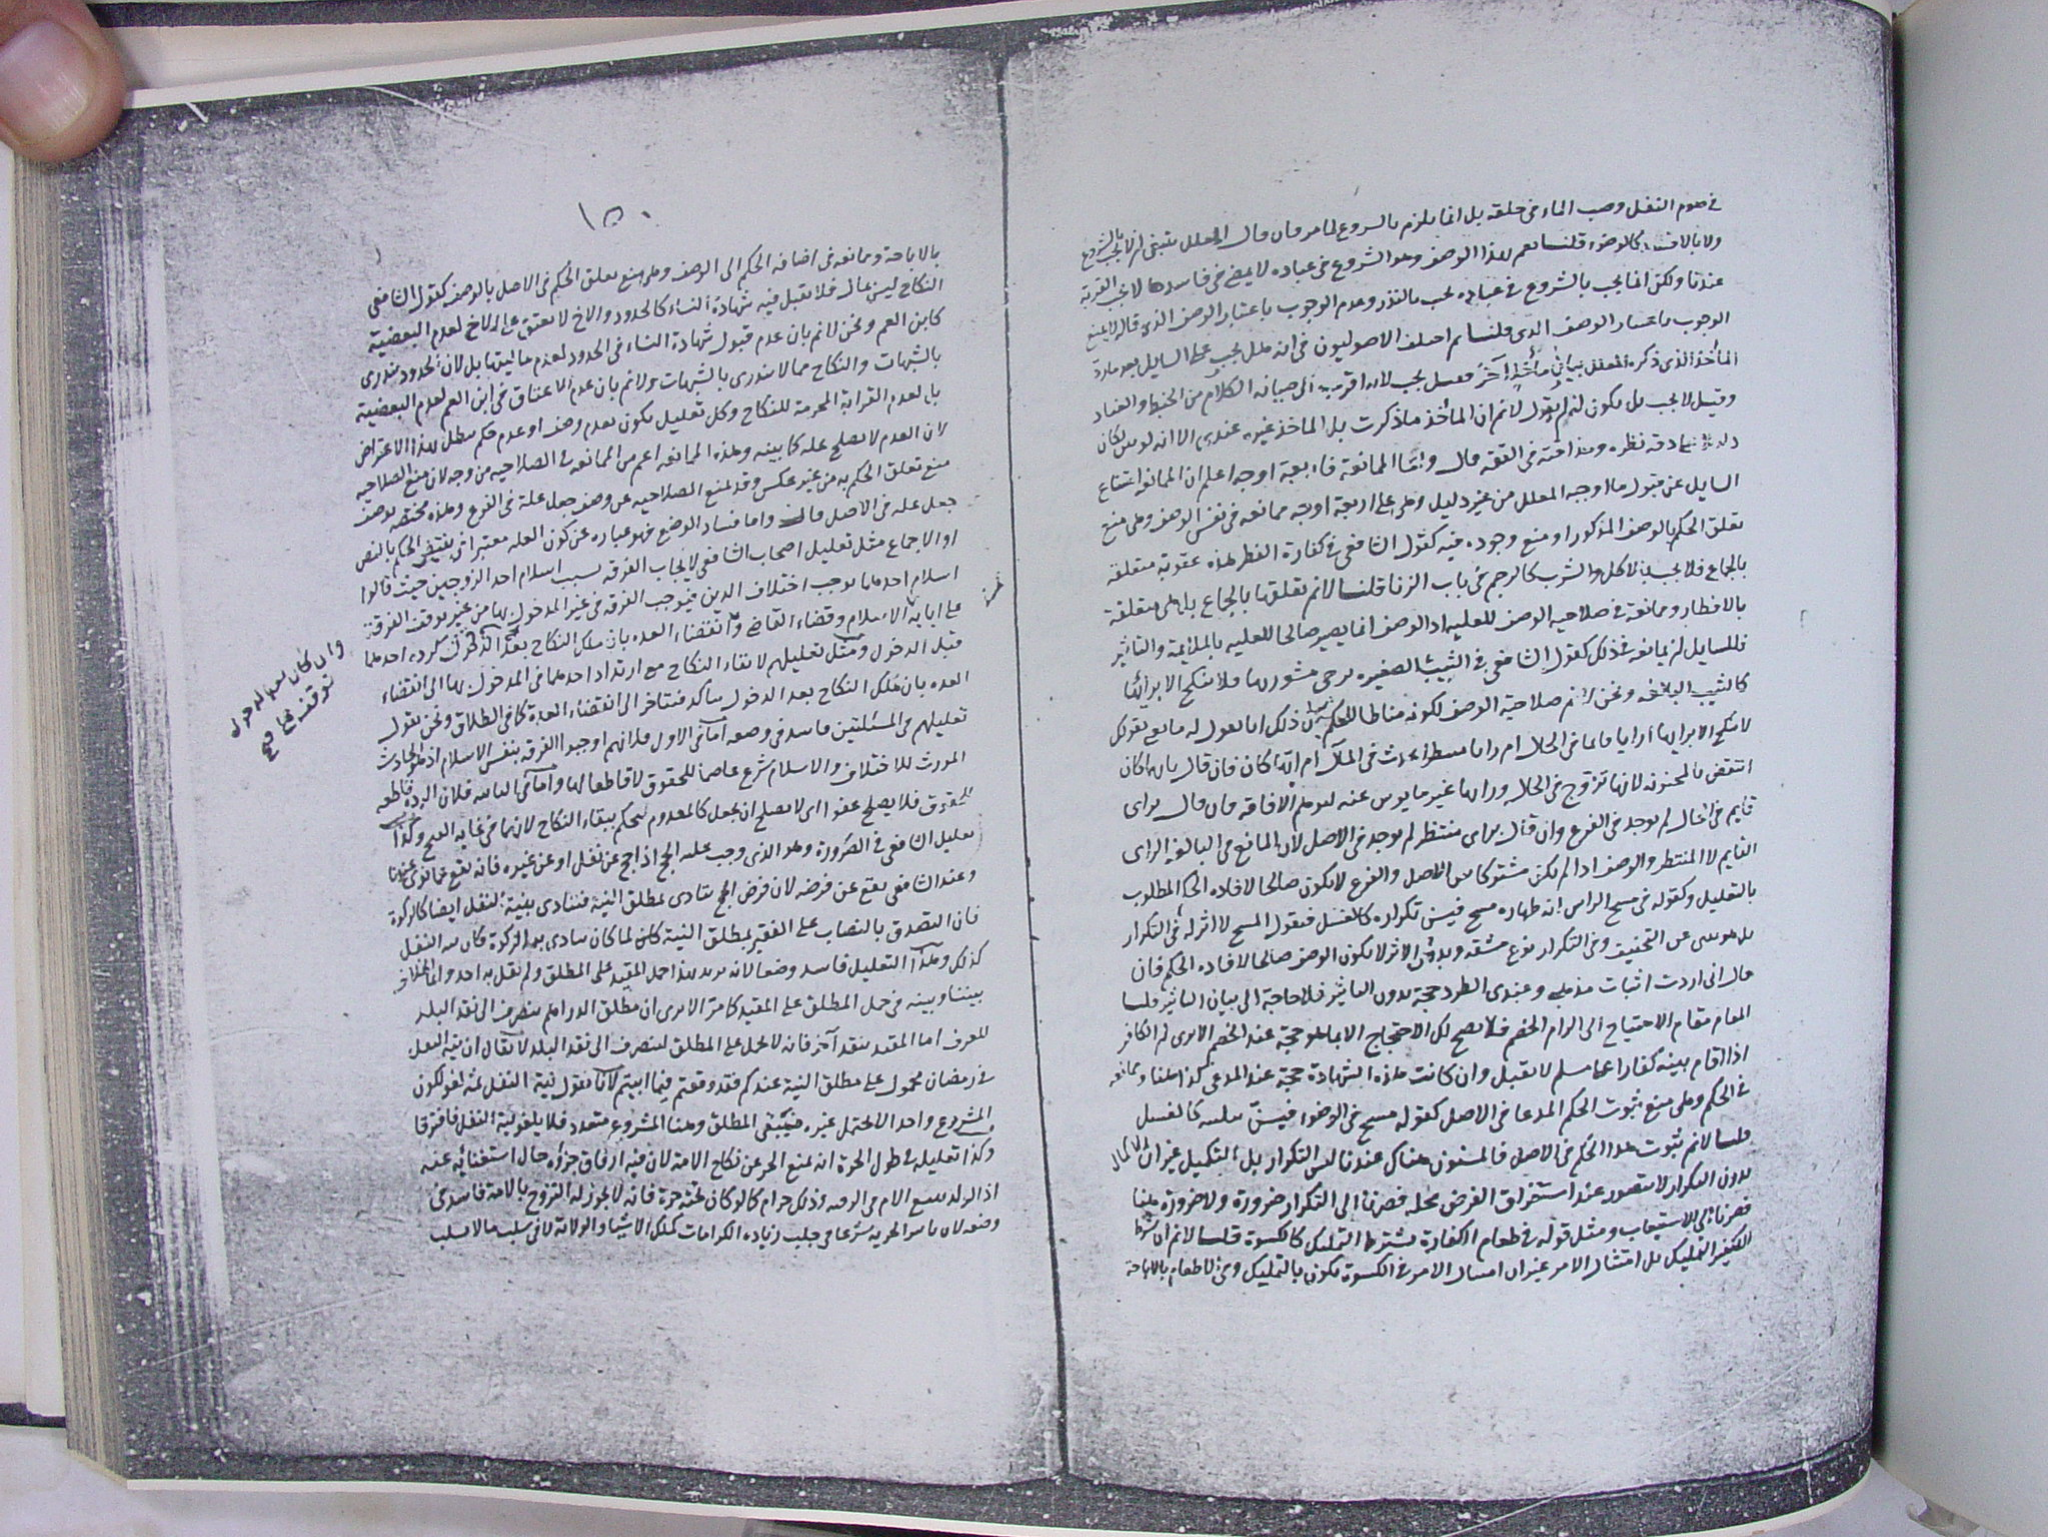 في صوم النفل وصب الماء في حلقه بل انما يلزم بالشروع لما مر فان قال المعلل ينبغي ان لا يجب بالشروع
ولا بالافساد كالوضوء قلنا نعم لهذا الوصف وهو الشروع في عبادة لا يمضى في فاسدها لا تجب القربة
عندنا ولكن انما يجب بالشروع في عبادة تجب بالنذر وعدم الوجوب باعتبار الوصف الذي قاله لا يمنع
الوجوب باعتبار الوصف الذي قلنا ثم اختلف الاصوليون في انه هل يجب على السايل بعد ما رد
المأخذ الذي ذكره المعلل بيان مأخذ آخر فقيل يجب لانه اقرب الى صيانة الكلام من الخبط والعناد
وقيل لا يجب بل يكون له ان يقول لا نم ان المأخذ ما ذكرت بل المأخذ غيره عندي الا انه لو بين لكان
دقة نظره وحذاقته في الفقه قال واما الممانعة فاربعة اوجه اعلم ان الممانعة امتناع
السايل عن قبول ما اوجبه المعلل من غير دليل وهي على اربعة اوجه ممانعة في نفس الوصف وهي منع
تعلق الحكم بالوصف المذكور او منع وجوده فيه كقول الشافعي في كفارة الفطر هذه عقوبة متعلقة
بالجماع فلا تجب بالاكل والشرب كالرجم في باب الزنا قلنا لا نم تعلقها بالجماع بل هي متعلقة
بالافطار وممانعة في صلاحية الوصف للعلية اذ الوصف انما يصير صالحا للعلية بالملايمة والتاثير
فللسايل ان يمانعه في ذلك كقول الشافعي في الثيب الصغيرة يرجى مشورتها فلا تنكح الا برأيها
كالثيب البالغة ونحن لا نم صلاحية الوصف لكونه مناطا للحكم ذلك انا نقول له ما تعني بقولك
لا تنكح الا برأيها أرايا قائما في الحال ام رايا منتظرا يحدث في المآل ام ايهما كان فان قال بايهما كان
انتقض بالمجنونة لانها تزوج في الحال ورايها غير مايوس عنه لتوهم الافاقة فان قال براي
قايم في الحال لم يوجد في الفرع وان قال براي منتظر لم يوجد في الاصل لان المانع في البالغة الراى
القايم لا المنتظر والوصف اذا لم يكن مشتركا بين الاصل والفرع لا يكون صالحا لافادة الحكم المطلوب
بالتعليل وكقوله في مسح الراس انه طهارة مسح فيسن تكراره كالغسل فنقول المسح لا اثر له في التكرار
بل هو مبني عن التخفيف وفي التكرار نوع مشقة وبدون الاثر لا يكون الوصف صالحا لافادة الحكم فان
قال اني اردت اثبات مذهبي وعندي الطرد حجة بدون التاثير فلا حاجة الى بيان التاثير قلنا
المقام مقام الاحتياج الى الزام الخصم فلا يصح لك الاحتجاج الا بما هو حجة عند الخصم الا يرى ان الكافر
اذا اقام بينة كفارا على مسلم لا تقبل وان كانت هذه الشهادة حجة عند المدعي كذا هنا وممانعة
في الحكم وهي منع ثبوت الحكم المدعا في الاصل كقوله مسح في الوضوء فيسن تثليثه كالغسل
قلنا لا نم ثبوت هذا الحكم في الاصل فالمسنون هناك عندنا ليس التكرار بل التكميل غير ان الاكمال
بدون التكرار لا يتصور عند استغراق الفرض محله فصرنا الى التكرار ضرورة ولا ضرورة هنا
فصرنا الى الاستيعاب ومثل قوله في طعام الكفارة يشترط التمليك كالكسوة قلنا لا نم ان شرط
التكفير التمليك بل امتثال الامر غير ان امتثال الامر في الكسوة يكون بالتمليك وفي الاطعام بالاباحة
١٥٠
بالاباحة وممانعة في اضافة الحكم الى الوصف وهي منع تعلق الحكم في الاصل بالوصف كقول الشافعي
النكاح ليس بمال فلا تقبل فيه شهادة النساء كالحدود والاخ لا يعتق على الاخ لعدم البعضية
كابن العم ونحن لا نم بان عدم قبول شهادة النساء في الحدود لعدم ماليتها بل لان الحدود تندرى
بالشبهات والنكاح مما لا يندرى بالشبهات ولا نم بان عدم الاعتاق في ابن العم لعدم البعضية
بل لعدم القرابة المحرمة للنكاح وكل تعليل يكون بعدم وصف او عدم حكم يبطل بهذا الاعتراض
لان العدم لا يصلح علة كما بينه وهذه الممانعة اعم من الممانعة في الصلاحية من وجه لان منع الصلاحية
منع تعلق الحكم به من غير عكس وقد تمنع الصلاحية عن وصف جعل علة في الفرع وهذه مختصة بوصف
جعل علة في الاصل قال واما فساد الوضع فهو عبارة عن كون العلة معتبرا في نقيض الحكم بالنص
او الاجماع مثل تعليل اصحاب الشافعي لايجاب الفرقة بسبب اسلام احد الزوجين حيث قالوا
اسلام احدهما يوجب اختلاف الدين فيوجب الفرقة في غير المدخول بها من غير توقف الفرقة
على اباية الاسلام وقضاء القاضي وانقضاء العدة بان ملك النكاح بعد الدخول كردة احدهما
قبل الدخول ومثل تعليلهم لابقاء النكاح مع ارتداد احدهما في المدخول بها الى انقضاء
العدة بان ملك النكاح بعد الدخول متأكد فيتاخر الى انقضاء العدة كما في الطلاق ونحن نقول
تعليلهم في المسئلتين فاسد في وضعه أما في الاول فلانهم اوجبوا الفرقة بنفس الاسلام اذ هو الحادث
المورث للاختلاف والاسلام شرع عاصما للحقوق لا قاطعا لها وأما في الثانية فلان الردة قاطعة
للحقوق فلا يصلح عفوا اى لا يصلح ان يجعل كالمعدوم ليحكم ببقاء النكاح لانها في غاية القبح وكذا
تعليل الشافعي في الصرورة وهو الذي وجب عليه الحج اذا حج عن نفل او عن غيره فانه يقع عما نوى عندنا
وعند الشافعي يقع عن فرضه لان فرض الحج يتادى بمطلق النية فيتادى بنية النفل ايضا كالزكوة
فان التصدق بالنصاب على الفقير بمطلق النية كان لما كان يتادى بها الزكوة كان بنية النفل
كذلك وهذا التعليل فاسد وضعا لانه يريد بهذا حمل المقيد على المطلق ولم يقل به احد وانما الخلاف
بيننا وبينه في حمل المطلق على المقيد كما مر الا يرى ان مطلق الدراهم ينصرف الى نقد البلد
للعرف اما المقيد بنقد آخر فانه لا يحمل على المطلق لينصرف الى نقد البلد لا يقال ان نية النفل
في رمضان محمول على مطلق النية عندكم فقد وقعتم فيما ابيتم لانا نقول نية النفل ثمه لغو لكون
المشروع واحد الا يحتمل غيره فيبقى المطلق وهنا المشروع متعدد فلا يلغو نية النفل فافترقا
وكذا تعليله في طول الحرة انه يمنع الحر عن نكاح الامة لان فيه ارقاق جزؤه حال استغنائه عنه
اذ الولد يتبع الام في الرق وذلك حرام كما لو كان تحته حرة فانه لا يجوز له التزوج بالامة فاسد في
وضعه لان تاثير الحرية شرعا في جلب زيادة الكرامات كملك الاشياء والولاية لا في سلب ما لا يسلب
وان كان بعد الدخول
توقف